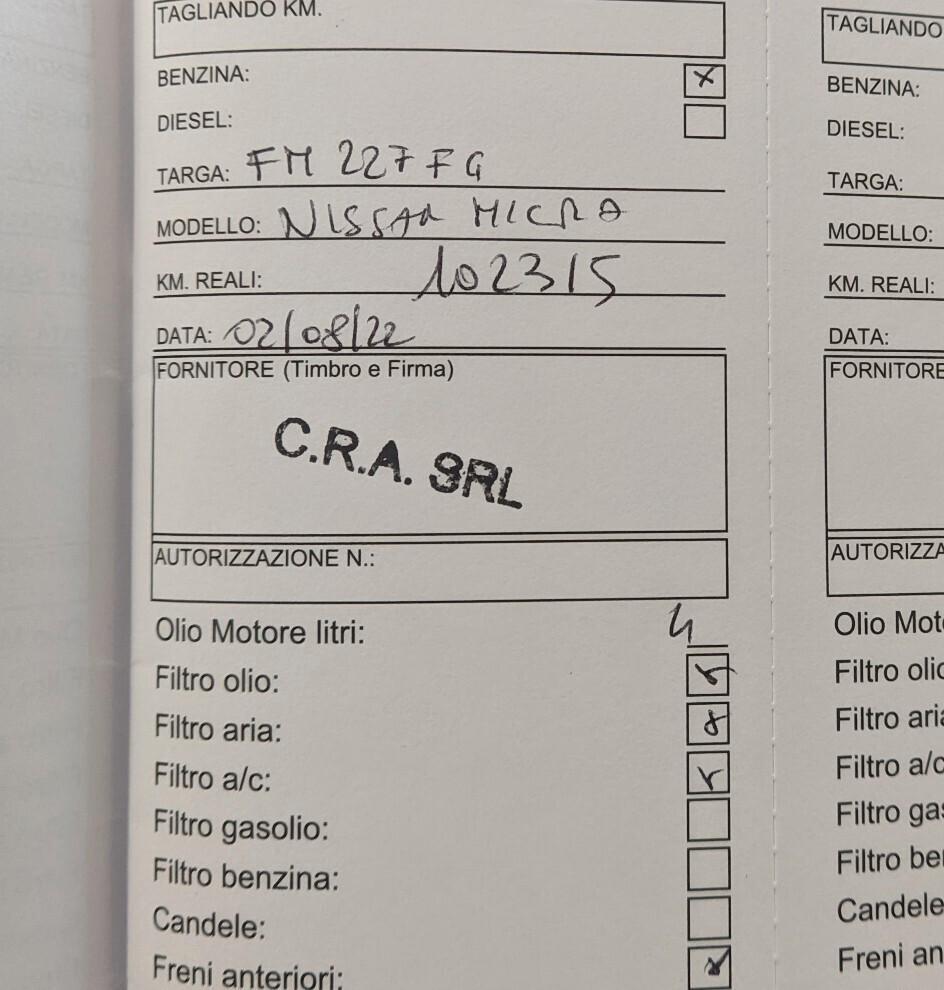 TAGLIANDO KM.
BENZINA: X
DIESEL:
TARGA: FM 227 FG
MODELLO: NISSAN MICRA
KM. REALI: 102315
DATA: 02/08/22
FORNITORE (Timbro e Firma)
C.R.A. SRL
AUTORIZZAZIONE N.:
Olio Motore litri: 4
Filtro olio: X
Filtro aria: X
Filtro a/c: X
Filtro gasolio:
Filtro benzina:
Candele:
Freni anteriori: X
TAGLIANDO
BENZINA:
DIESEL:
TARGA:
MODELLO:
KM. REALI:
DATA:
FORNITORE
AUTORIZZA
Olio Mot
Filtro olio
Filtro aria
Filtro a/c
Filtro gas
Filtro ben
Candele
Freni an